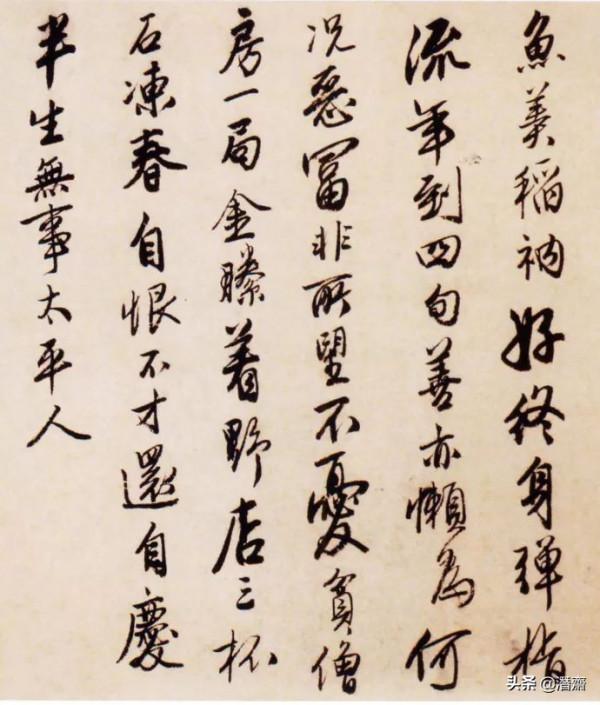 魚羹稻衲好終身弹指
流年到四旬善亦懶為何
况惡冨非所望不憂貧僧
房一局金縢着野店三杯
石凍春自恨不才還自慶
半生無事太平人
头条 @潛齋